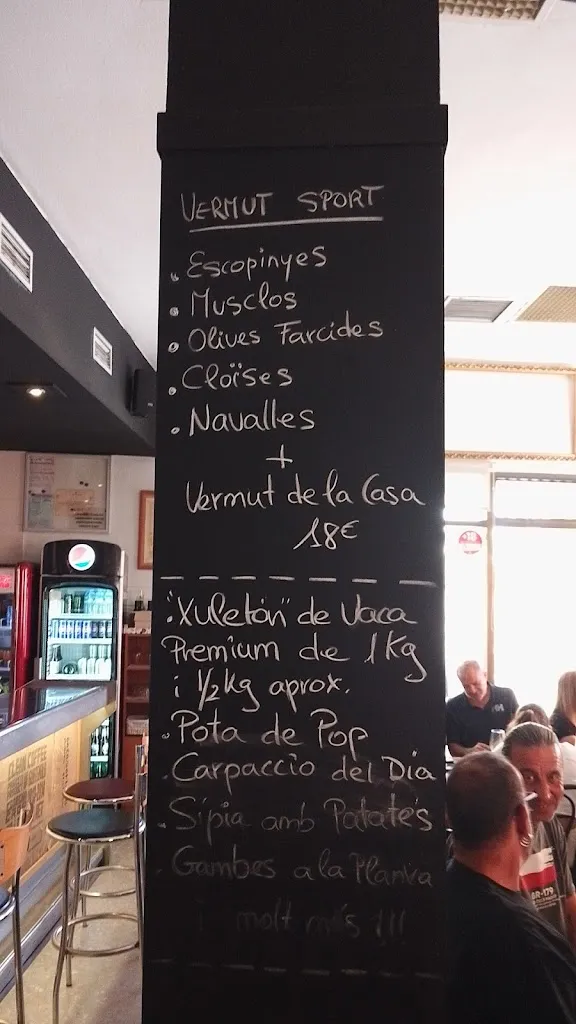 VERMUT SPORT
• Escopinyes
• Musclos
• Olives Farcides
• Cloïses
• Navalles
+
Vermut de la Casa
18€
• "Xuletón" de Vaca
Premium de 1Kg
i 1/2 Kg aprox.
• Pota de Pop
• Carpaccio del Dia
• Sípia amb Patates
• Gambes a la Planxa
i molt més !!!
BR-179